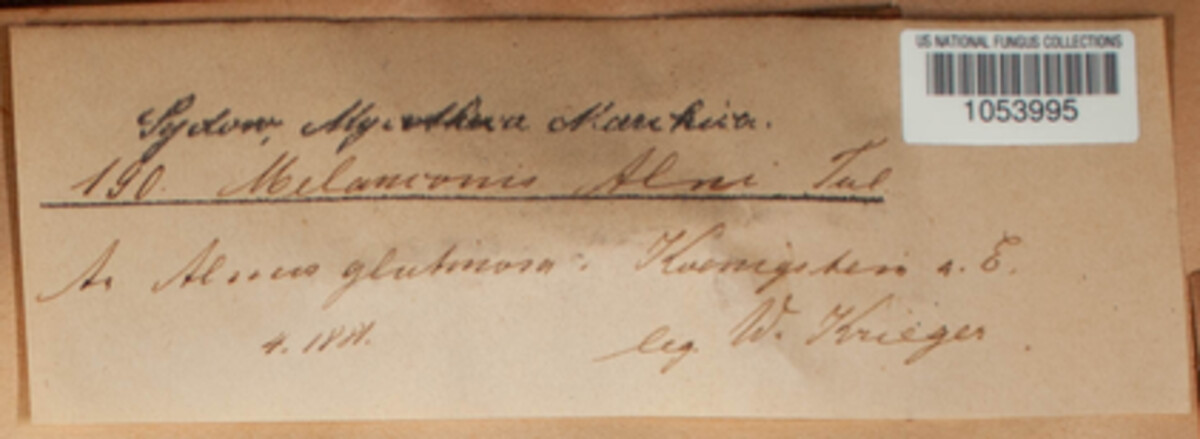 US NATIONAL FUNGUS COLLECTIONS
1053995
Sydow, Mycotheca Marchica.
190. Melanconis Alni Tul
An Alnus glutinosa. Koenigstein a. E.
4. 1881.
leg. W. Krieger